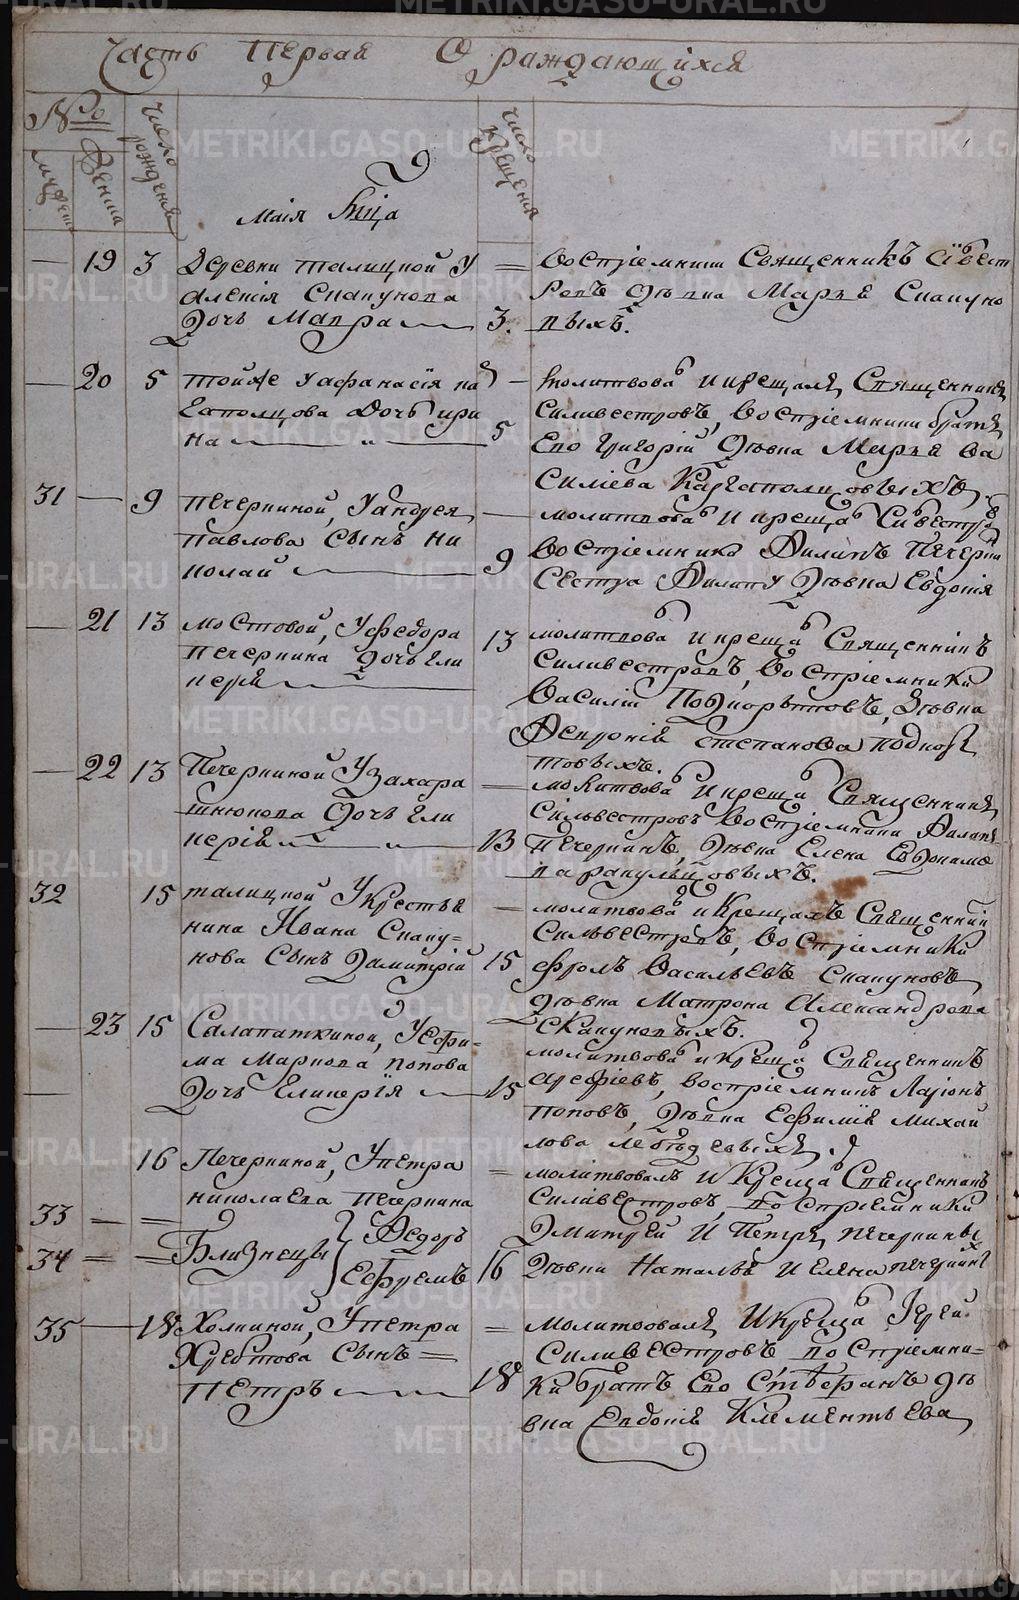 Часть Первая О раждающихся
№
мужеск
женска
число рождения
число крещения
Маія Мца
19 3 Деревни талицкой у
Алексія Скапунова
Дочь Мавра 3.
воспріемники Священникъ Сівест
ровъ Дѣвка Марья Скапуно
выхъ.
20 5 тойже у афанасія ка
гаполцова дочь ири
на 5
молитвова и крещалъ Священникъ
Силивестровъ, воспріемники братъ
Его Григорій Дѣвка Марья Ва
силіева Каргаполцовыхъ.
31 9 печеркиной, у андрея
павлова сынъ ни
колай 9
молитвова и креща Сивестр
воспріемники Филипъ печерки
сестра Филипу Дѣвка Евдокія
21 13 мостовой, у федора
печеркина дочь гли
керія 13
молитвова и креща Священникъ
Силивестровъ, воспріемники
Василій Подкорытовъ, Дѣвка
степанова подкоры
товыхъ.
22 13 Печеркиной у захара
дочь гли
керія 13
молитвова и креща Священникъ
Сильвестровъ воспріемники Филипъ
печеркинъ, Дѣвка Елена
32 15 талицкой у крестья
нина Ивана Скапу=
нова Сынъ Димитрій 15
молитвова и крещалъ Священник
Сильвестровъ, воспріемники
фролъ Васильевъ Скапуновъ
дѣвка Матрона Александрова
Скапуновыхъ.
23 15 Салапаткиной, у Ефи=
ма Маркова попова
Дочь Гликерія 15
молитвова и креща Священникъ
Арефіевъ, воспріемникъ Ларіонъ
поповъ, Дѣвка Ефимія Михай
лова
16 Печеркиной, у петра
николаева печеркина
33
34 Близнецы Федоръ
Ефремъ 16
молитвовалъ и Креща Священникъ
Силивестровъ, воспріемники
Дмитрей и Петръ печеркины
Дѣвки Наталья и Елена печеркиных
35 18 Холкиной, у петра
Хребтова сынъ =
петръ 18
молитвовалъ и креща Іерей
Силивестровъ воспріемни=
ки братъ Его Стефанъ дѣ
вка Евдокія Клементьева
METRIKI.GASO-URAL.RU